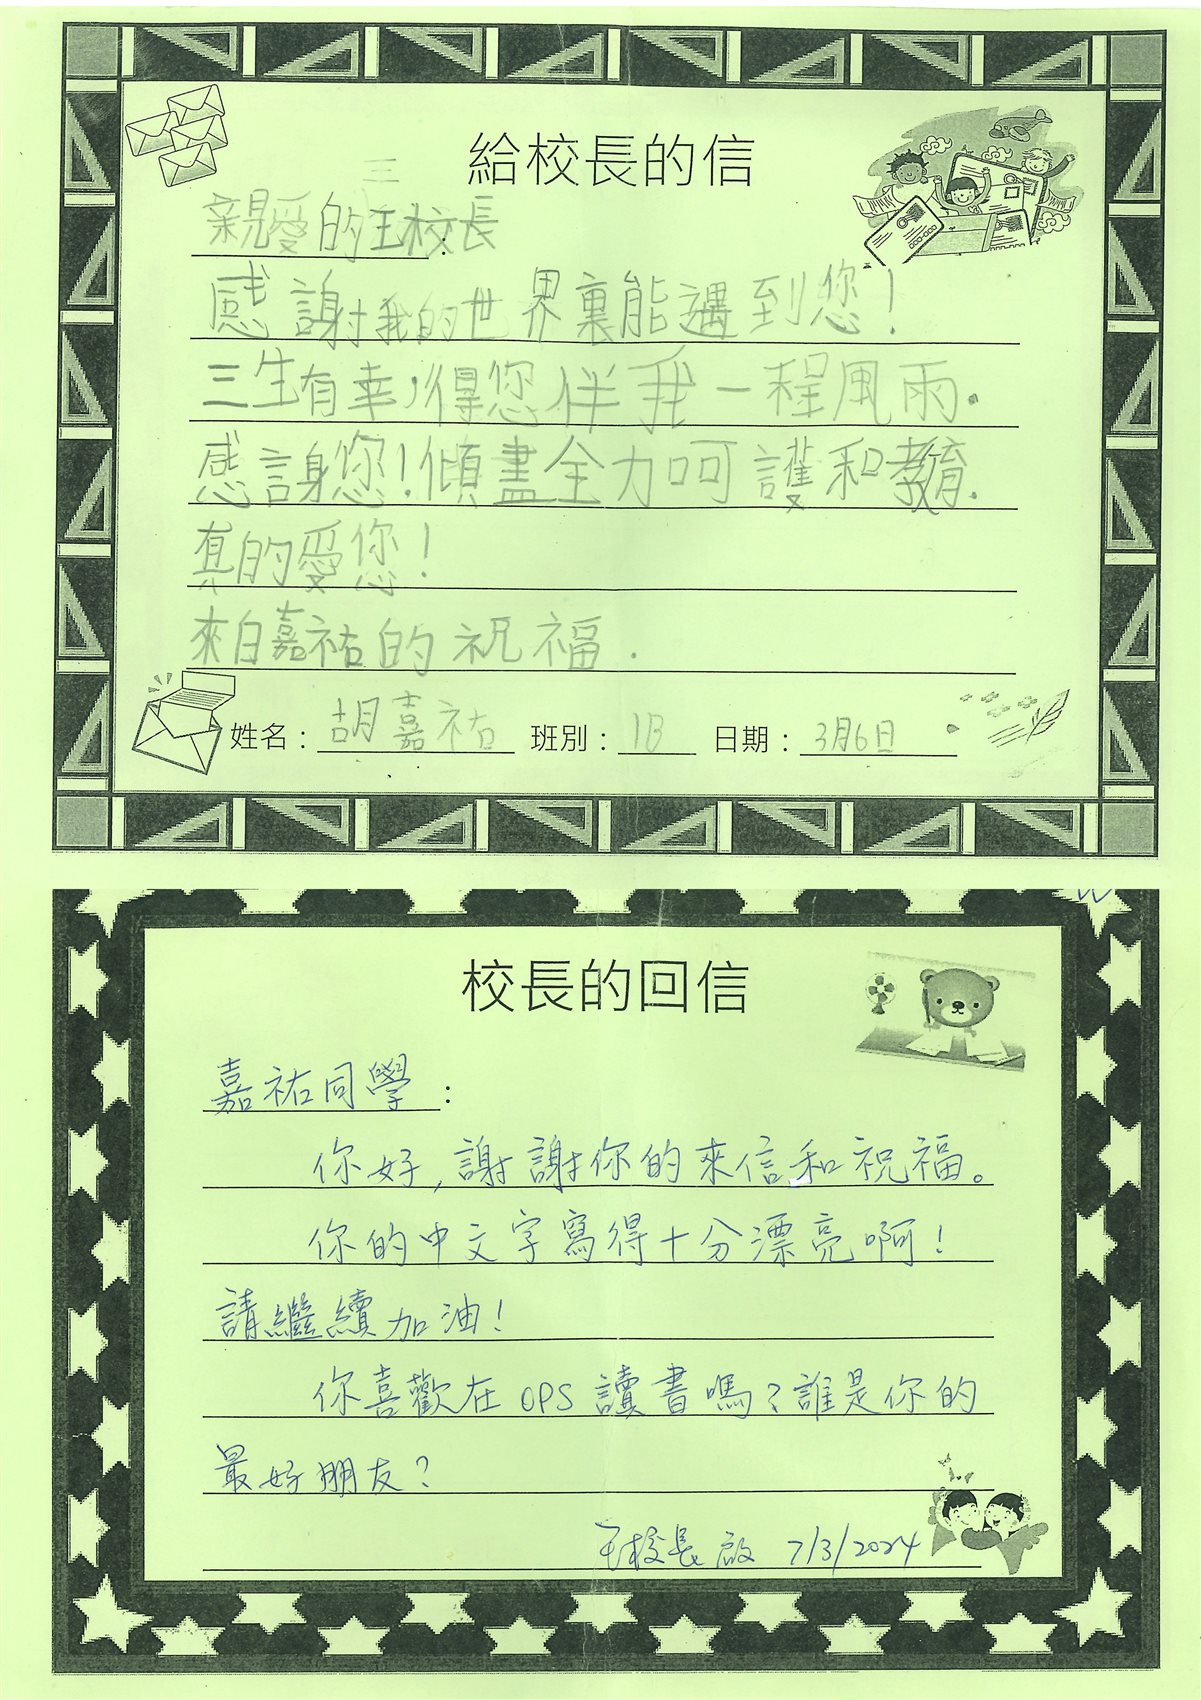 給校長的信
親愛的王校長:
感謝我的世界裏能遇到您!
三生有幸,得您伴我一程風雨.
感謝您!傾盡全力呵護和教育.
真的愛您!
來自嘉祐的祝福.
姓名:胡嘉祐 班別:1B 日期:3月6日
校長的回信
嘉祐同學:
你好,謝謝你的來信和祝福。
你的中文字寫得十分漂亮啊!
請繼續加油!
你喜歡在OPS讀書嗎?誰是你的
最好朋友?
王校長啟 7/3/2024